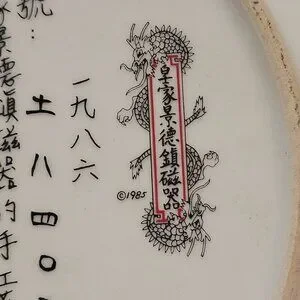 皇家景德鎮磁器
©1985
一九八六
號:
八四0
家景德鎮磁器的手工